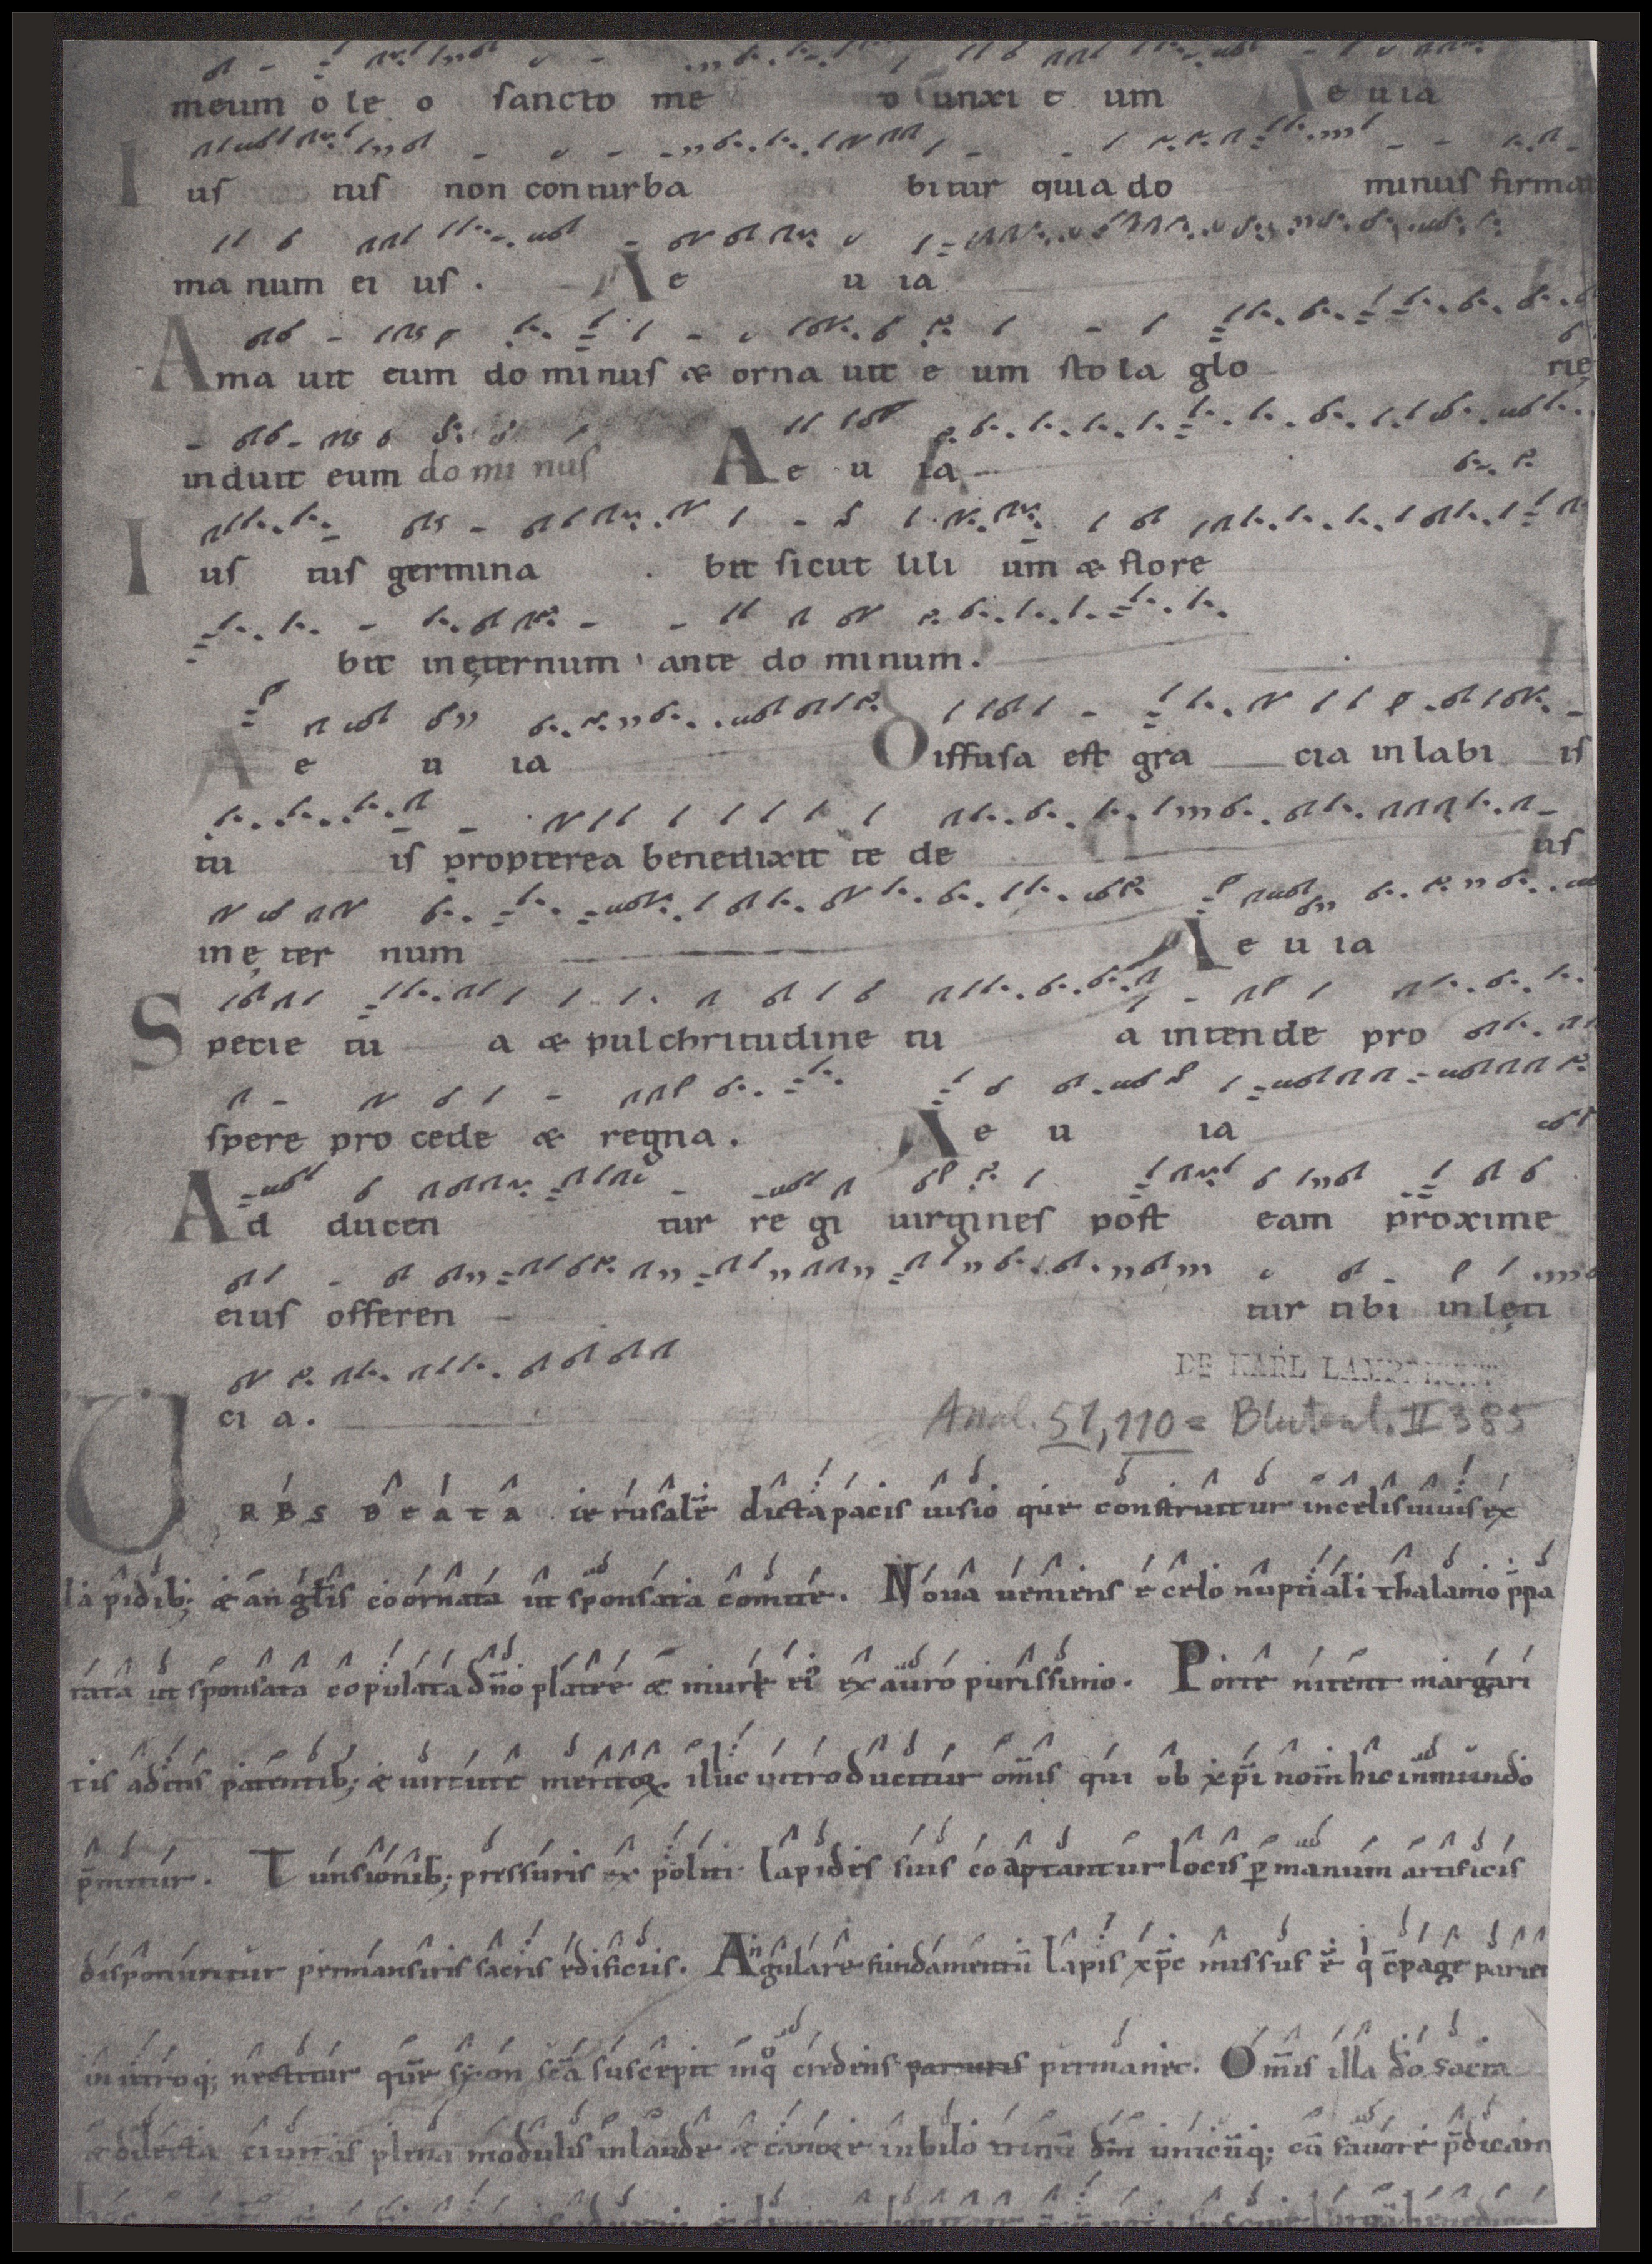 meum o le o sancto me o unxi e um Ae uia
I us tus non conturba bitur quia do minus firmat
ma num ei us . Ae u ia
Ama uit eum do minus æ orna uit e um stola glo rię
induit eum do mi nus Ae u ia
I us tus germina bit sicut lili um æ flore
bit in ęternum ante do minum .
Ae u ia Diffusa est gra cia in labi is
tu is propterea benedixit te de us
in ę ter num Ae u ia
S petie tu a æ pulchritudine tu a intende pro
spere pro cede æ regna . Ae u ia
Ad ducen tur re gi uirgines post eam proxime
eius offeren tur tibi in lęti
DR KARL LAMPRECHT
ci a .
Anal. 51, 110 = Bluteal. II 385
URBS BEATA ierusalē dicta pacis uisio que construitur in celis uiuis ex
lapidib; æ anglis coornata ut sponsata comite . Noua ueniens e celo nuptiali thalamo p̄pa
rata ut sponsata copulata dn̄o platee æ muri ei' ex auro purissimo . Porte nitent margari
tis aditis patentib; æ uirtute meritoꝝ illuc introducitur om̄is qui ob xp̄i nom̄ hic in mundo
p̄mitur . Tunsionib; pressuris ex politi lapides suis coaptantur locis ꝑ manum artificis
disponuntur permansuris sacris edificiis . Angulare fundamentū lapis xp̄c missus ē q c̄page pariet
in utroq; nectitur que syon sc̄a suscepit in q̊ credens permanet . Om̄is illa dō sacra
æ dilecta ciuitas plena modulis in laude æ canore iubilo trinū dm̄ unicūq; cū fauore p̄dicant